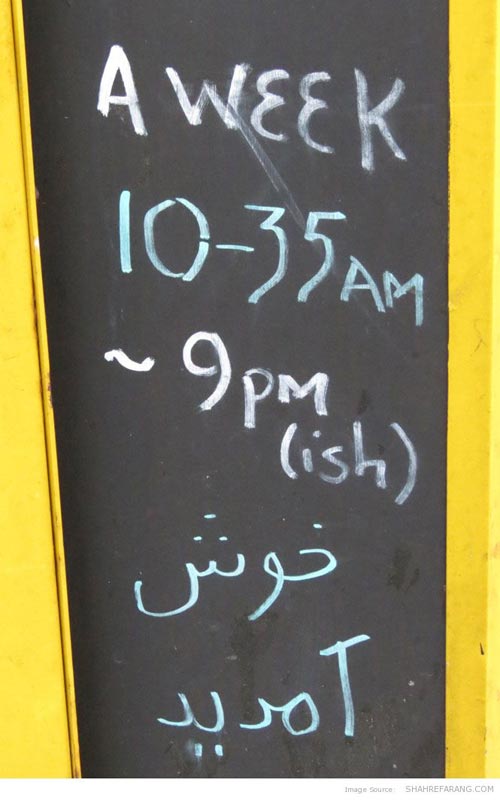 A WEEK
10-35AM
~ 9PM
(ish)
خوش
آمدید
Image Source: SHAHREFARANG.COM